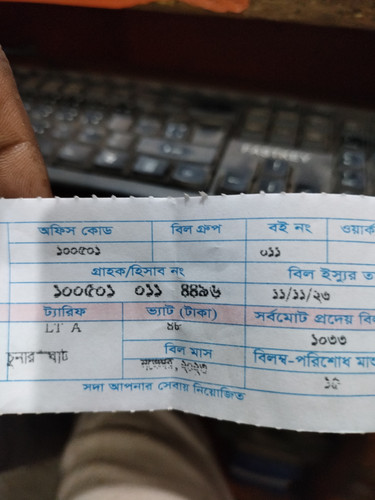 অফিস কোড বিল গ্রুপ বই নং ওয়ার্ক
১০০৫০১ ০১১
গ্রাহক/হিসাব নং বিল ইস্যুর তা
১০০৫০১ ০১১ ৪৪৯৬ ১১/১১/২৩
ট্যারিফ ভ্যাট (টাকা) সর্বমোট প্রদেয় বিল
LT A ৪৮ ১০৩৩
চুনারুঘাট বিল মাস বিলম্ব-পরিশোধ মাত
নভেম্বর, ২০২৩
সদা আপনার সেবায় নিয়োজিত